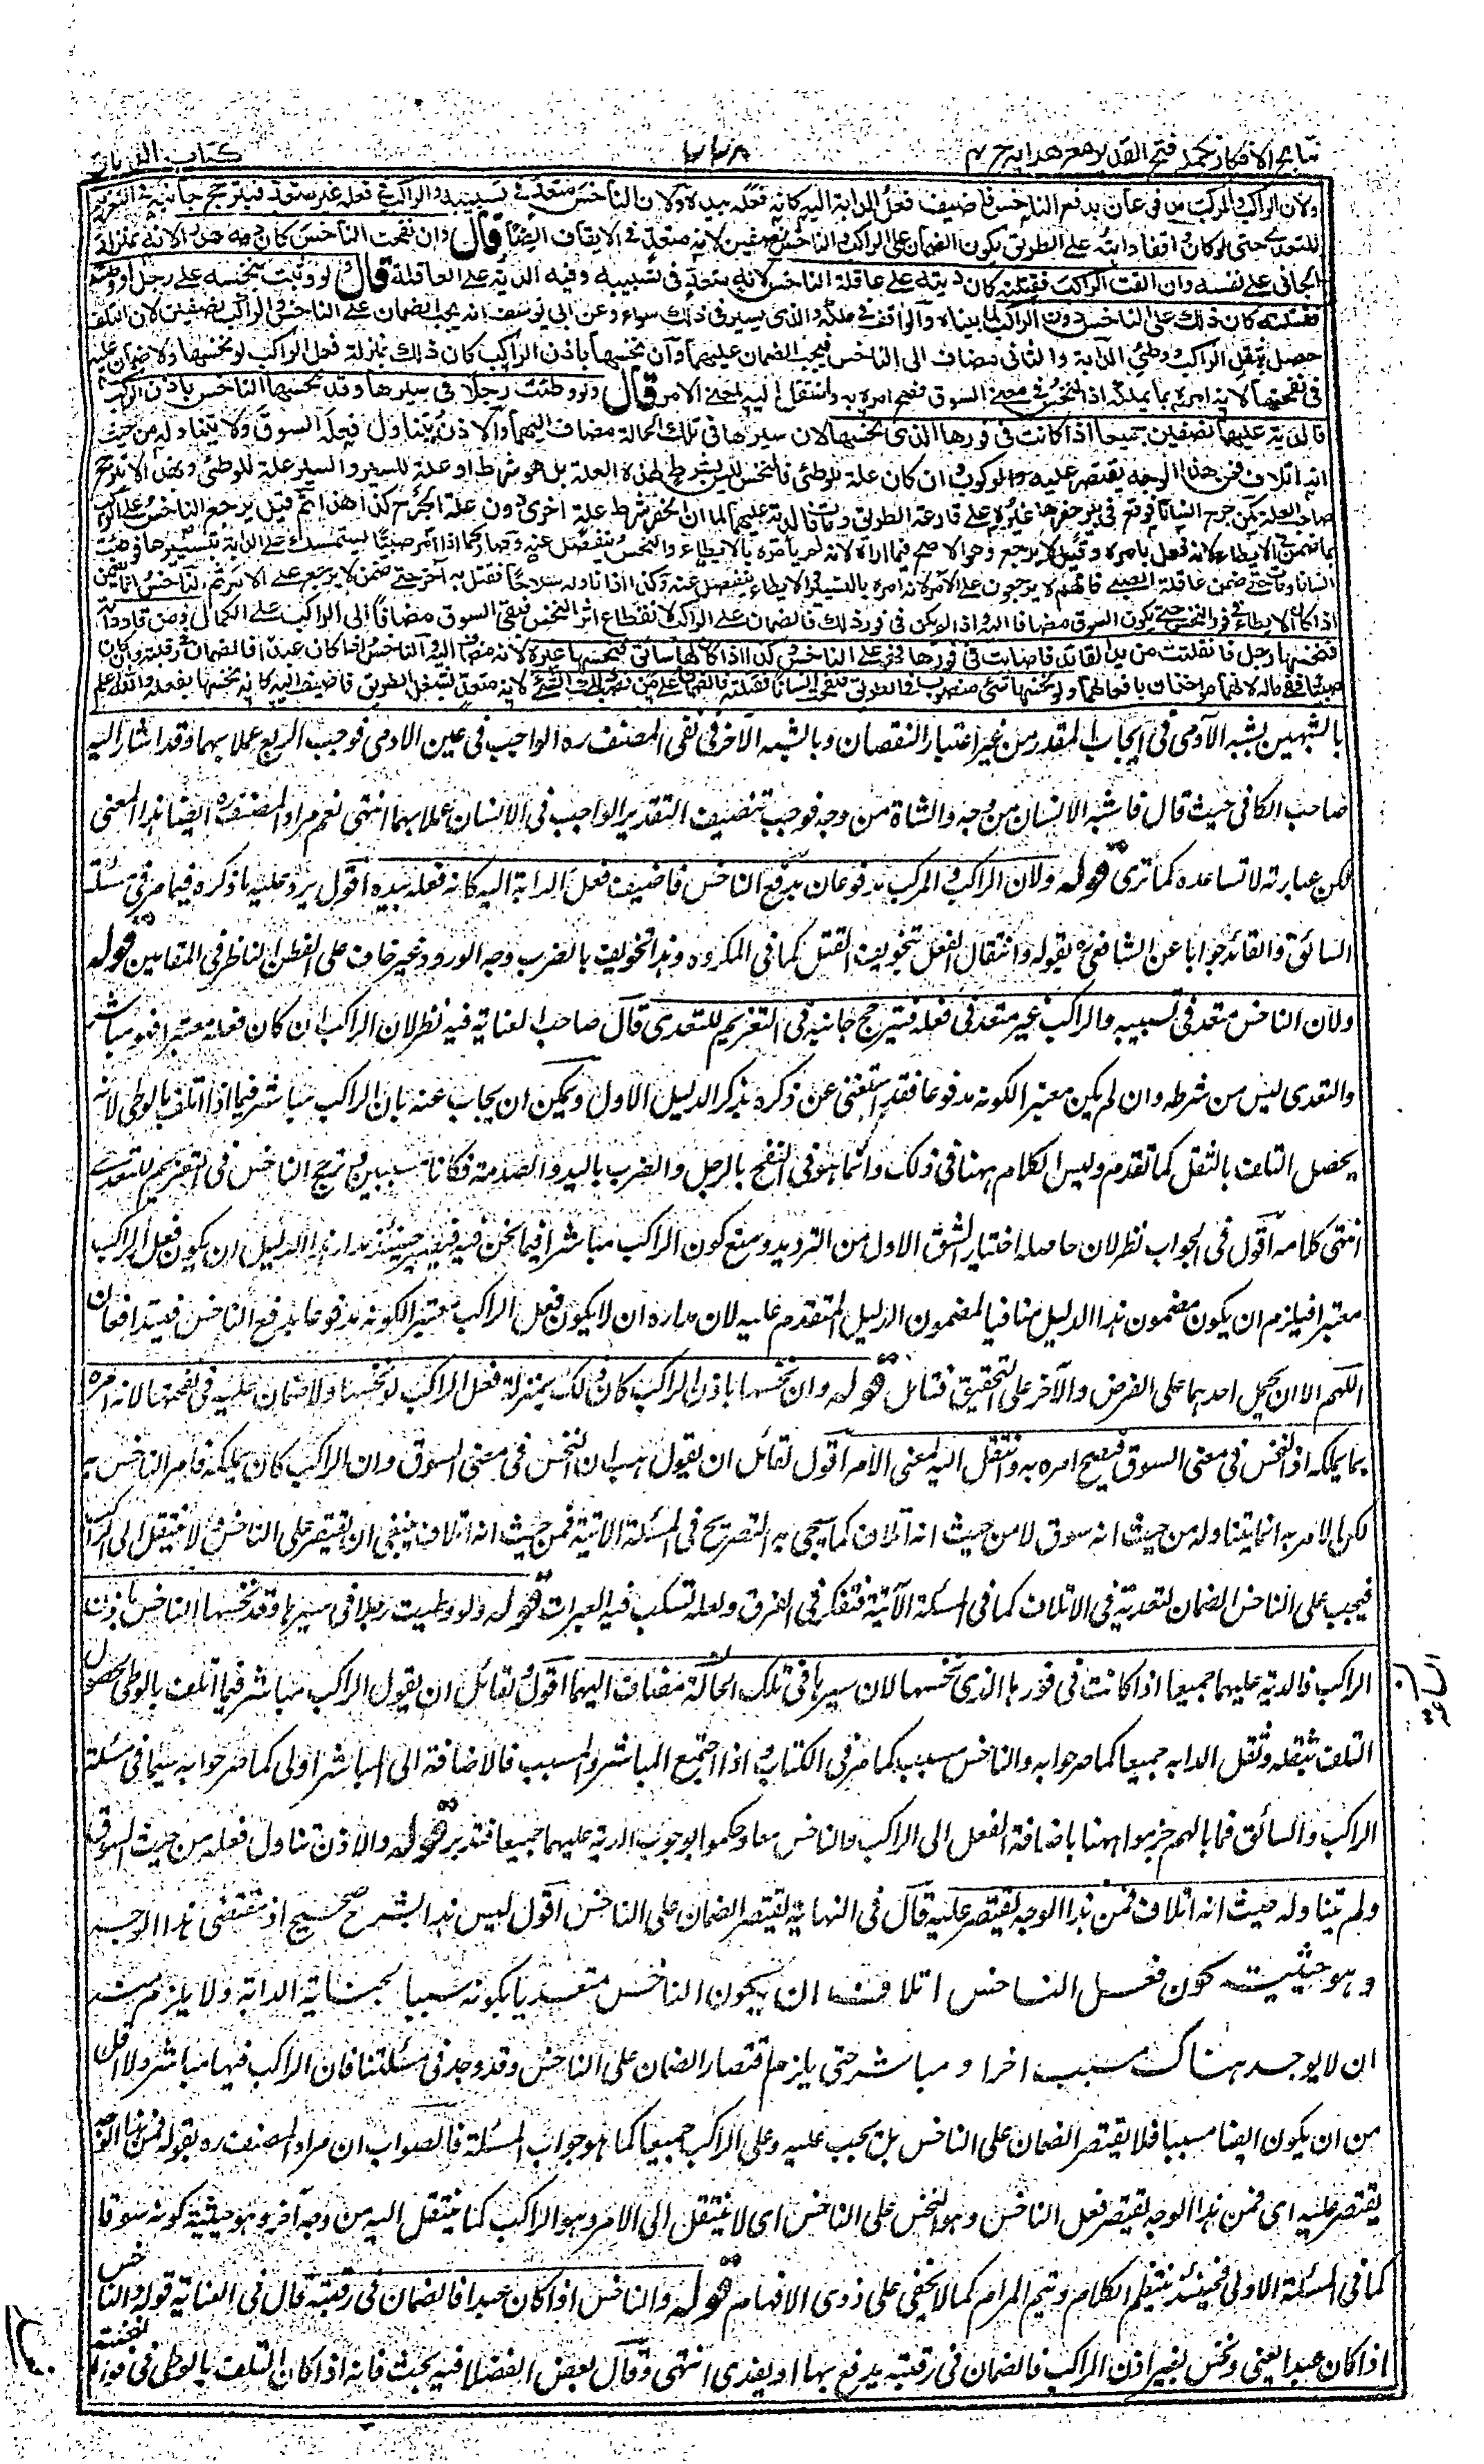 نتائج الافكار تكملہ فتح القدیر مع ھدایہ ج ٤ ٧٧٨ کتاب الدیات
ولان الراکب والمرکب مدفوعان بدفع الناخس فاضیف فعل الدابة الیہ کانہ فعلہ بیدہ ولان الناخس متعد فی تسبیبہ والراکب فی فعلہ غیر متعد فیترجح جانبہ فی التغریم
للتعدی حتی لو کان واقفا دابتہ علی الطریق یکون الضمان علی الراکب والناخس نصفین لانہ متعد فی الایقاف ایضا قال وان نفحت الناخس کان دمہ ھدرا لانہ بمنزلة
الجانی علی نفسہ وان القت الراکب فقتلتہ کان دیتہ علی عاقلة الناخس لانہ متعد فی تسبیبہ وفیہ الدیة علی العاقلة قال ولو وثبت بنخسہ علی رجل او وطئتہ
فقتلتہ کان ذلک علی الناخس دون الراکب لما بیناہ والواقف فی ملکہ والذی یسیر فی ذلک سواء وعن ابی یوسف انہ یجب الضمان علی الناخس والراکب نصفین لان التلف
حصل بثقل الراکب ووطئ الدابة والثانی مضاف الی الناخس فیجب الضمان علیھما وان نخسھا باذن الراکب کان ذلک بمنزلة فعل الراکب لو نخسھا ولا ضمان علیہ
فی نفحتھا لانہ امرہ بما یملکہ اذ النخس فی معنی السوق فصح امرہ بہ وانتقل الیہ لمعنی الامر قال ولو وطئت رجلا فی سیرھا وقد نخسھا الناخس باذن الراکب
فالدیة علیھما نصفین جمیعا اذا کانت فی فورھا الذی نخسھا لان سیرھا فی تلک الحالة مضاف الیھما والاذن یتناول فعلہ السوق ولا یتناولہ من حیث
انہ اتلاف فمن ھذا الوجہ یقتصر علیہ والرکوب وان کان علة للوطئ فالنخس لیس بشرط لھذہ العلة بل ھو شرط او علة للسیر والسیر علة للوطئ وبھذا لا یترجح
صاحب العلة کمن جرح انسانا فوقع فی بئر حفرھا غیرہ علی قارعة الطریق ومات فالدیة علیھما لما ان الحفر شرط علة اخری دون علة الجرح کذا ھذا ثم قیل یرجع الناخس علی الراکب
بما ضمن فی الایطاء لانہ فعل بامرہ وقیل لا یرجع وھو الاصح فیما اراہ لانہ لم یامرہ بالایطاء والنخس ینفصل عنہ وصار کما اذا امر صبیا یستمسک علی الدابة بتسییرھا فوطئت
انسانا ومات حتی ضمن عاقلة الصبی فانھم لا یرجعون علی الآمر لانہ امرہ بالتسییر والایطاء ینفصل عنہ وکذا اذا ناولہ سلاحا فقتل بہ آخر حتی ضمن لا یرجع علی الآمر ثم الناخس انما یضمن
اذا کان الایطاء فی فور النخس حتی یکون السوق مضافا الیہ واذا لم یکن فی فور ذلک فالضمان علی الراکب لانقطاع اثر النخس فبقی السوق مضافا الی الراکب علی الکمال ومن قاد دابة
فنخسھا رجل فانفلتت من ید القائد فاصابت فی فورھا فھو علی الناخس وکذا اذا کان لھا سائق فنخسھا غیرہ لانہ مضاف الیہ والناخس اذا کان عبدا فالضمان فی رقبتہ وان کان
صبیا ففی مالہ لانھما مواخذان بافعالھما ولو نخسھا شئ منصوب فی الطریق فنفحت انسانا فقتلتہ فالضمان علی من نصب ذلک الشئ لانہ متعد بشغل الطریق فاضیف الیہ کانہ نخسھا بفعلہ واللہ اعلم
بالشبہین بشبہ الآدمی فی ایجاب المقدر من غیر اعتبار النقصان وبالشبہ الآخر فی نفی المصنف رہ الواجب فی عین الآدمی فوجب الربع عملا بہما وقد اشار الیہ
صاحب الکافی حیث قال فاشبہ الانسان من وجہ والشاة من وجہ فوجب تنصیف التقدیر الواجب فی الانسان عملا بہما انتہی نعم مراد المصنف رہ ایضا ہذا المعنی
لکن عبارتہ لا تساعدہ کما تری قولہ ولان الراکب والمرکب مدفوعان بدفع الناخس فاضیف فعل الدابة الیہ کانہ فعلہ بیدہ اقول یرد علیہ ما ذکرہ فیما مر فی مسئلة
السائق والقائد جوابا عن الشافعی رہ بقولہ وانتقال الفعل بتخویف القتل کما فی المکروہ وہذا تخویف بالضرب وجہ الورود غیر خاف علی الفطن الناظر فی المقامین قولہ
ولان الناخس متعد فی تسبیبہ والراکب غیر متعد فی فعلہ فیترجح جانبہ فی التغریم للتعدی قال صاحب العنایة فیہ نظر لان الراکب ان کان فعلہ معتبرا فہو مباشر
والتعدی لیس من شرطہ وان لم یکن معتبرا لکونہ مدفوعا فقد استغنی عن ذکرہ بذکر الدلیل الاول ویمکن ان یجاب عنہ بان الراکب مباشر فیما اذا اتلف بالوطی لانہ
یحصل التلف بالثقل کما تقدم ولیس الکلام ہہنا فی ذلک وانما ہو فی النفح بالرجل والضرب بالید والصدمة فکانا مسببین وترجح الناخس فی التغریم للتعدی
انتہی کلامہ اقول فی الجواب نظر لان حاصلہ اختیار الشق الاول من التردید ومنع کون الراکب مباشرا فیما نحن فیہ فیصیر حینئذ مدار ہذا الدلیل ان یکون فعل الراکب
معتبرا فیلزم ان یکون مضمون ہذا الدلیل منافیا لمضمون الدلیل المتقدم علیہ لان مدارہ ان لا یکون فعل الراکب معتبرا لکونہ مدفوعا بدفع الناخس فیتدافعان
اللہم الا ان یحمل احدہما علی الفرض والآخر علی التحقیق فتامل قولہ وان نخسہا باذن الراکب کان ذلک بمنزلة فعل الراکب لو نخسہا ولا ضمان علیہ فی نفحتہا لانہ امرہ
بما یملکہ اذ النخس فی معنی السوق فیصح امرہ بہ وانتقل الیہ لمعنی الامر اقول لقائل ان یقول ہب ان النخس فی معنی السوق وان الراکب کان یملکہ فامر الناخس بہ
لکن الامر بہ انما یتناولہ من حیث انہ سوق لا من حیث انہ اتلاف کما سیجی بہ التصریح فی المسئلة الآتیة فمن حیث انہ اتلاف ینبغی ان یقتصر علی الناخس لا ینتقل الی الراکب
فیجب علی الناخس الضمان لتعدیہ فی الاتلاف کما فی المسئلة الآتیة فتفکر فی الفرق ولعلہ تسکب فیہ العبرات قولہ ولو وطیت رجلا فی سیرہا وقد نخسہا الناخس باذن
الراکب فالدیة علیہما جمیعا اذا کانت فی فورہا الذی نخسہا لان سیرہا فی تلک الحالة مضاف الیہما اقول لقائل ان یقول الراکب مباشر فیما اتلف بالوطی لحصول
التلف بثقلہ وثقل الدابہ جمیعا کما صرحوا بہ والناخس مسبب کما مر فی الکتاب واذا اجتمع المباشر والمسبب فالاضافة الی المباشر اولی کما صرحوا بہ سیما فی مسئلة
الراکب والسائق فما بالہم جزموا ہہنا باضافة الفعل الی الراکب والناخس معا وحکموا بوجوب الدیة علیہما جمیعا فتدبر قولہ والاذن تناول فعلہ من حیث السوق
ولم یتناولہ حیث انہ اتلاف فمن ہذا الوجہ یقتصر علیہ قال فی النہایة یقتصر الضمان علی الناخس اقول لیس ہذا الشرح صحیح اذ مقتضی ہذا الوجہ
وہو حیثیت کون فعل الناخس اتلافا ان یکون الناخس متعدیا بکونہ سببا لجنایة الدابة ولا یلزم منہ
ان لا یوجد ہناک سبب اخر او مباشر حتی یلزم اقتصار الضمان علی الناخس وقد وجد فی مسئلتنا فان الراکب فیہا مباشر ولا اقل
من ان یکون ایضا مسببا فلا یقتصر الضمان علی الناخس بل یجب علیہ وعلی الراکب جمیعا کما ہو جواب المسئلة فالصواب ان مراد المصنف رہ بقولہ فمن ہذا الوجہ
یقتصر علیہ ای فمن ہذا الوجہ یقتصر فعل الناخس وہو النخس علی الناخس ای لا ینتقل الی الآمر وہو الراکب کما ینتقل الیہ من وجہ آخر وہو حیثیة کونہ سوقا
کما فی المسئلة الاولی فحینئذ ینتظم الکلام ویتم المرام کما لا یخفی علی ذوی الافہام قولہ والناخس اذا کان عبدا فالضمان فی رقبتہ قال فی العنایة قولہ والناخس
اذا کان عبدا یعنی ونخس بغیر اذن الراکب فالضمان فی رقبتہ یدفع بہا او یفدی انتہی وقال بعض الفضلا فیہ بحث فانہ اذا کان التلف بالوطی فی فور النخسة